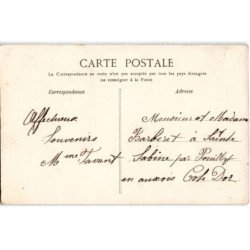 CARTE POSTALE
La Correspondance au recto n'est pas acceptée par tous les pays étrangers
(se renseigner à la Poste)
Correspondance
Adresse
Affectueux
Souvenirs
Mme Tavant
Monsieur et Madame
Barberet à Sainte
Sabine par Pouilly
en auxois Cote Dor